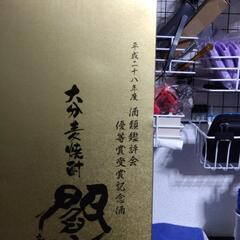 平成二十八年度 酒類鑑評会
優等賞受賞記念酒
大分麦焼酎
閻